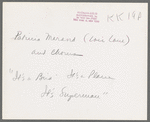 KK 198
Patricia Marand (Lois Lane)
and Chorus
"It's a Bird - It's a Plane
It's Superman"